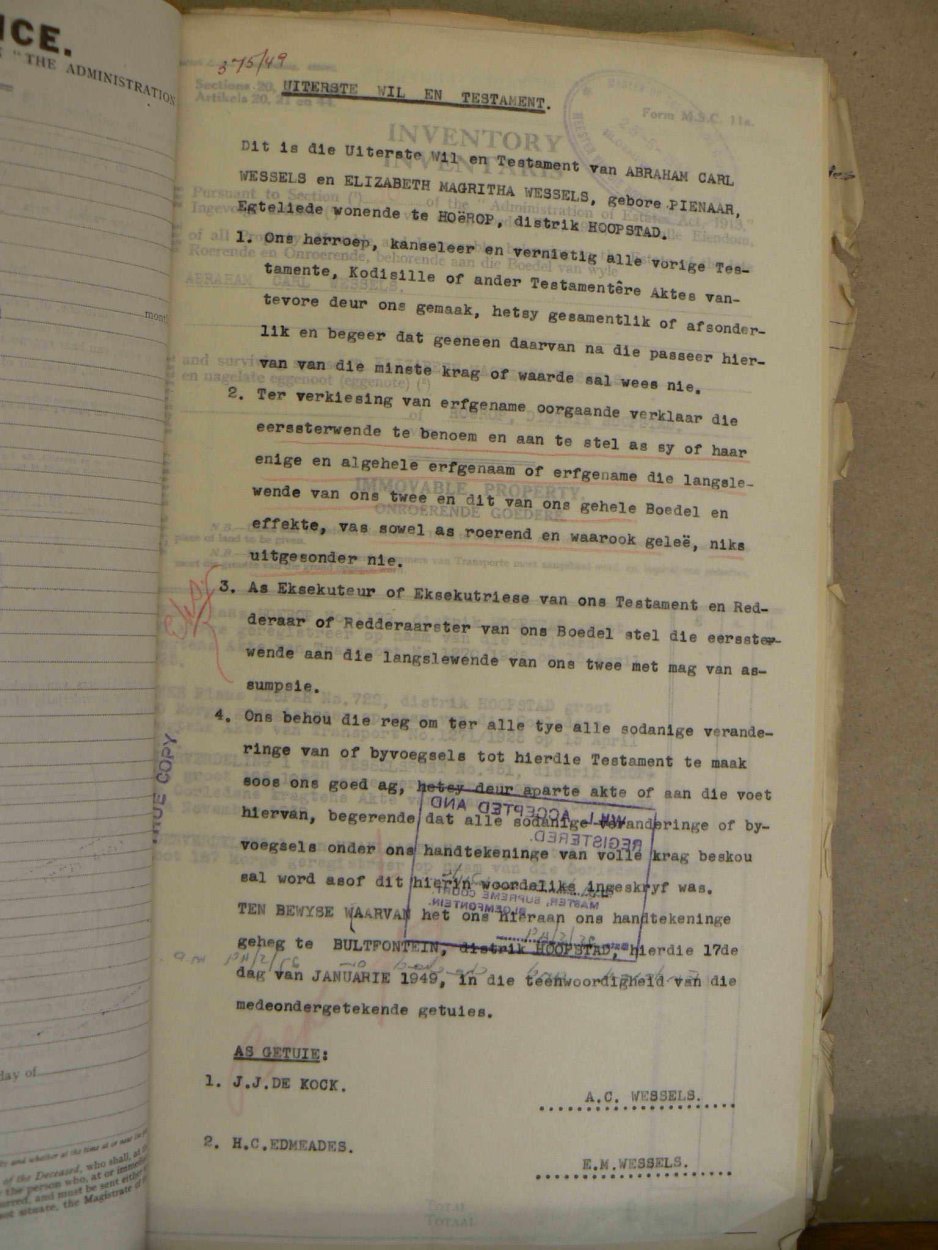 ICE.
"THE ADMINISTRATION
month
day of
375/49
UITERSTE WIL EN TESTAMENT.
Sections 20,
Artikels 20, 21 en 44.
Form M.S.C. 11a.
INVENTORY
Dit is die Uiterste Wil en Testament van ABRAHAM CARL
WESSELS en ELIZABETH MAGRITHA WESSELS, gebore PIENAAR,
Egteliede wonende te HOëROP, distrik HOOPSTAD.
1. Ons herroep, kanseleer en vernietig alle vorige Tes-
tamente, Kodisille of ander Testamentêre Aktes van-
tevore deur ons gemaak, hetsy gesamentlik of afsonder-
lik en begeer dat geeneen daarvan na die passeer hier-
van van die minste krag of waarde sal wees nie.
2. Ter verkiesing van erfgename oorgaande verklaar die
eerssterwende te benoem en aan te stel as sy of haar
enige en algehele erfgenaam of erfgename die langsle-
wende van ons twee en dit van ons gehele Boedel en
effekte, vas sowel as roerend en waarook geleë, niks
uitgesonder nie.
3. As Eksekuteur of Eksekutriese van ons Testament en Red-
deraar of Redderaarster van ons Boedel stel die eersster-
wende aan die langslewende van ons twee met mag van as-
sumpsie.
4. Ons behou die reg om ter alle tye alle sodanige verande-
ringe van of byvoegsels tot hierdie Testament te maak
soos ons goed ag, hetsy deur aparte akte of aan die voet
hiervan, begerende dat alle sodanige veranderinge of by-
voegsels onder ons handtekeninge van volle krag beskou
sal word asof dit hierin woordelike ingeskryf was.
TEN BEWYSE WAARVAN het ons hieraan ons handtekeninge
geheg te BULTFONTEIN, distrik HOOPSTAD, hierdie 17de
dag van JANUARIE 1949, in die teenwoordigheid van die
medeondergetekende getuies.
AS GETUIE:
1. J.J.DE KOCK.
A.C. WESSELS.
2. H.C.EDMEADES.
E.M.WESSELS.
TRUE COPY
WILL ACCEPTED AND
REGISTERED.
MASTER, SUPREME COURT
BLOEMFONTEIN.
TOTAL
TOTAAL